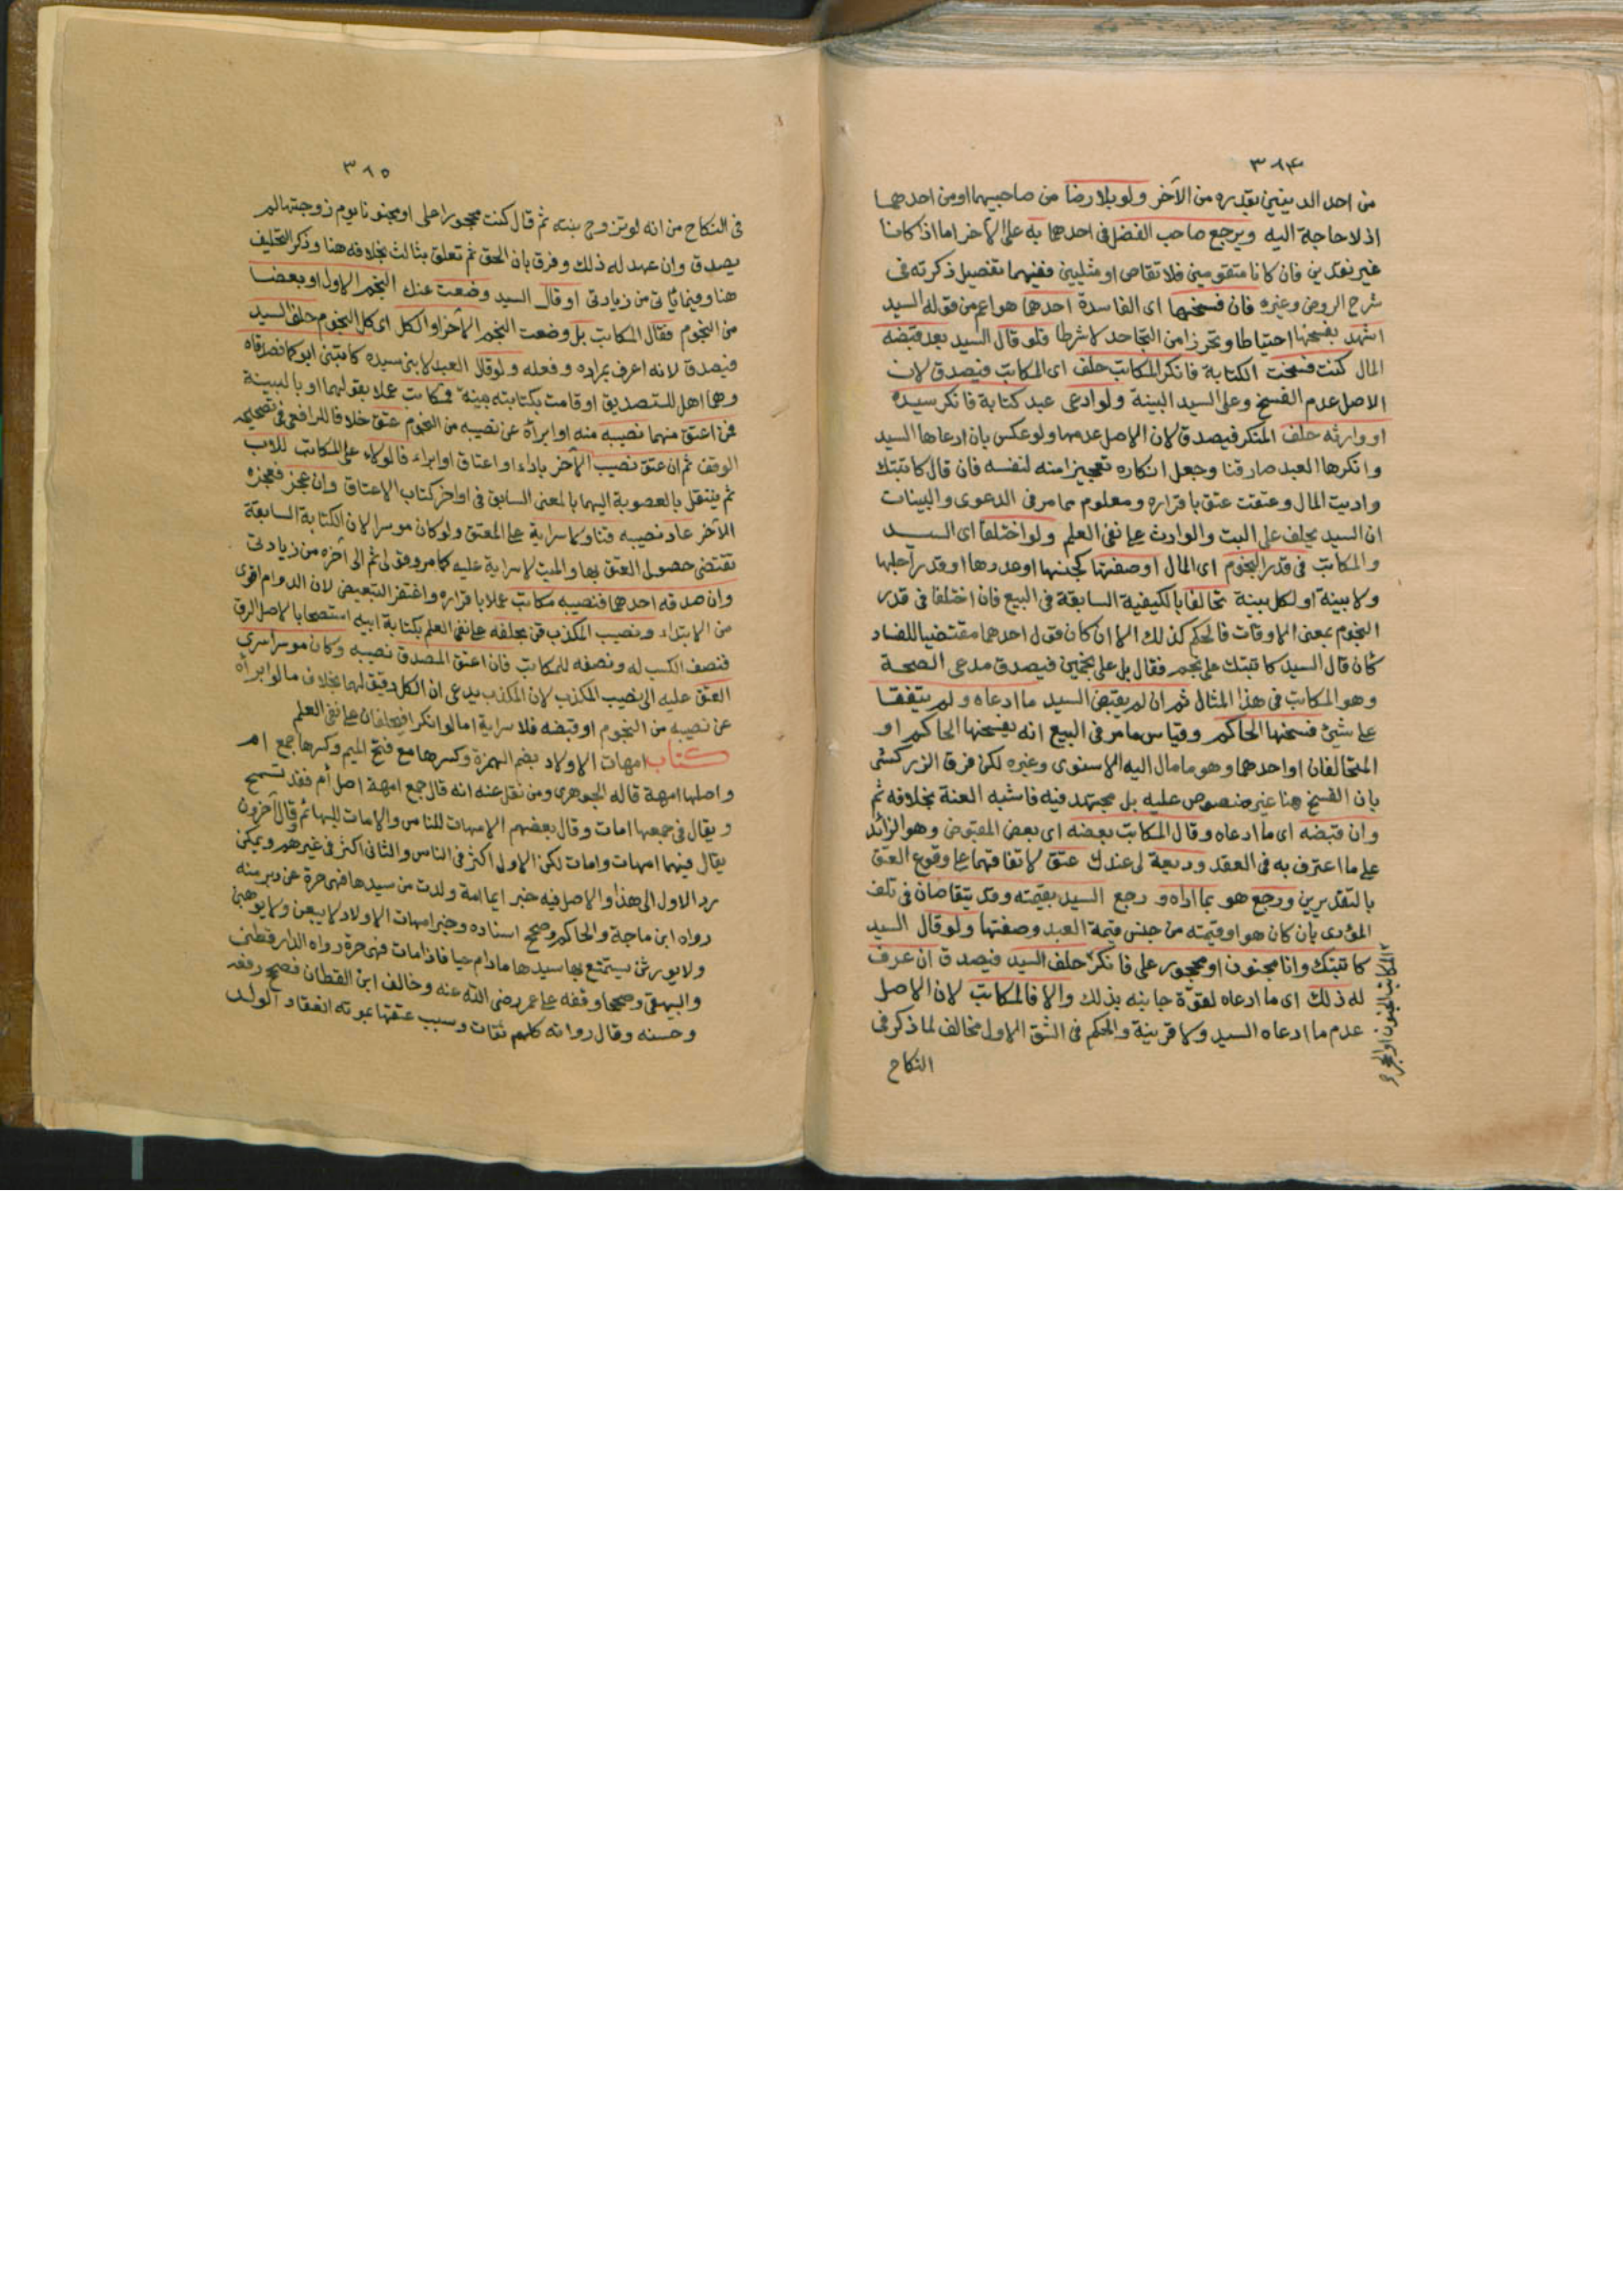 ٣٨٤
من احد الدينين بقدره من الآخر ولو بلا رضا من صاحبيهما او من احدهما
اذ لا حاجة اليه ويرجع صاحب الفضل في احدهما به على الآخر اما اذا كانا
غير نقدين فان كانا متقومين فلا تقاص او مثليين ففيهما تفصيل ذكرته في
شرح الروض وغيره فان فسخها اى الفاسدة احدهما هو اعم من قوله السيد
اشهد بفسخها احتياطا وتحرزا من التجاحد لا شرطا فلو قال السيد بعد قبضه
المال كنت فسخت الكتابة فانكر المكاتب حلف اى المكاتب فيصدق لان
الاصل عدم الفسخ وعلى السيد البينة ولو ادعى عبد كتابة فانكر سيده
او وارثه حلف المنكر فيصدق لان الاصل عدمها ولو عكس بان ادعاها السيد
وانكرها العبد صار قنا وجعل انكاره تعجيزا منه لنفسه فان قال كاتبتك
واديت المال وعتقت عتق باقراره ومعلوم مما مر في الدعوى والبينات
ان السيد يحلف على البت والوارث على نفى العلم ولو اختلفا اى السيد
والمكاتب في قدر النجوم اى المال او صفتها كجنسها او عددها او قدر اجلها
ولا بينة او لكل بينة تحالفا بالكيفية السابقة في البيع فان اختلفا في قدر
النجوم بمعنى الاوقات فالحكم كذلك الا ان كان قول احدهما مقتضيا للفساد
كأن قال السيد كاتبتك على نجم فقال بل على نجمين فيصدق مدعى الصحة
وهو المكاتب في هذا المثال ثم ان لم يقبض السيد ما ادعاه ولم يتفقا
على شئ فسخها الحاكم وقياس ما مر في البيع انه يفسخها الحاكم او
المتحالفان او احدهما وهو ما مال اليه الاسنوى وغيره لكن فرق الزركشى
بان الفسخ هنا غير منصوص عليه بل مجتهد فيه فاشبه العنة بخلافه ثم
وان قبضه اى ما ادعاه وقال المكاتب بعضه اى بعض المقبوض وهو الزائد
على ما اعترف به في العقد وديعة لى عندك عتق لاتفاقهما على وقوع العتق
بالتقديرين ورجع هو بما اداه ورجع السيد بقيمته وقد يتقاصان في تلف
المؤدى بان كان هو او قيمته من جنس قيمة العبد وصفتها ولو قال السيد
كاتبتك وانا مجنون او محجور على فانكر حلف السيد فيصدق ان عرف
له ذلك اى ما ادعاه لقوة جانبه بذلك والا فالمكاتب لان الاصل
عدم ما ادعاه السيد ولا قرينة والحكم في الشق الاول مخالف لما ذكر في
النكاح
٣٨٥
في النكاح من انه لو تزوج بنته ثم قال كنت محجورا على او مجنونا يوم زوجتها لم
يصدق وان عهد له ذلك وفرق بان الحق ثم تعلق بثالث بخلافه هنا وذكر التحليف
هنا وفيما يأتى من زيادتى او قال السيد وضعت عنك النجم الاول او بعضا
من النجوم فقال المكاتب بل وضعت النجم الآخر او الكل اى كل النجوم حلف السيد
فيصدق لانه اعرف بمراده وفعله ولو قال العبد لابنى سيده كاتبنى ابوكما فصدقاه
وهما اهل للتصديق او قامت بكتابته بينة فمكاتب عملا بقولهما او بالبينة
فمن اعتق منهما نصيبه منه او ابرأه عن نصيبه من النجوم عتق خلافا للرافعى في تصحيحه
الوقف ثم ان عتق نصيب الآخر باداء او اعتاق او ابراء فالولاء على المكاتب للاب
ثم ينتقل بالعصوبة اليهما بالمعنى السابق في اواخر كتاب الاعتاق وان عجز فعجزه
الآخر عاد نصيبه قنا ولا سراية على المعتق ولو كان موسرا لان الكتابة السابقة
تقتضى حصول العتق بها والميت لا سراية عليه كما مر وقولى ثم الى آخره من زيادتى
وان صدقه احدهما فنصيبه مكاتب عملا باقراره واغتفر التبعيض لان الدوام اقوى
من الابتداء ونصيب المكذب قن بحلفه على نفى العلم بكتابة ابيه استصحابا لاصل الرق
فنصف الكسب له ونصفه للمكاتب فان اعتق المصدق نصيبه وكان موسرا سرى
العتق عليه الى نصيب المكذب لان المكذب يدعى ان الكل رقيق لهما بخلاف ما لو ابرأه
عن نصيبه من النجوم او قبضه فلا سراية اما لو انكرا فيحلفان على نفى العلم
كتاب امهات الاولاد بضم الهمزة وكسرها مع فتح الميم وكسرها جمع ام
واصلها امهة قاله الجوهرى ومن نقل عنه انه قال جمع امهة اصل أم فقد تسمح
ويقال في جمعها امات وقال بعضهم الامهات للناس والامات للبهائم وقال آخرون
يقال فيهما امهات وامات لكن الاول اكثر في الناس والثانى اكثر في غيرهم ويمكن
رد الاول الى هذا والاصل فيه خبر ايما امة ولدت من سيدها فهى حرة عن دبر منه
رواه ابن ماجة والحاكم وصحح اسناده وخبر امهات الاولاد لا يبعن ولا يوهبن
ولا يورثن يستمتع بها سيدها ما دام حيا فاذا مات فهى حرة رواه الدارقطنى
والبيهقى وصححا وقفه على عمر رضى الله عنه وخالف ابن القطان فصحح رفعه
وحسنه وقال رواته كلهم ثقات وسبب عتقها بموته انعقاد الولد